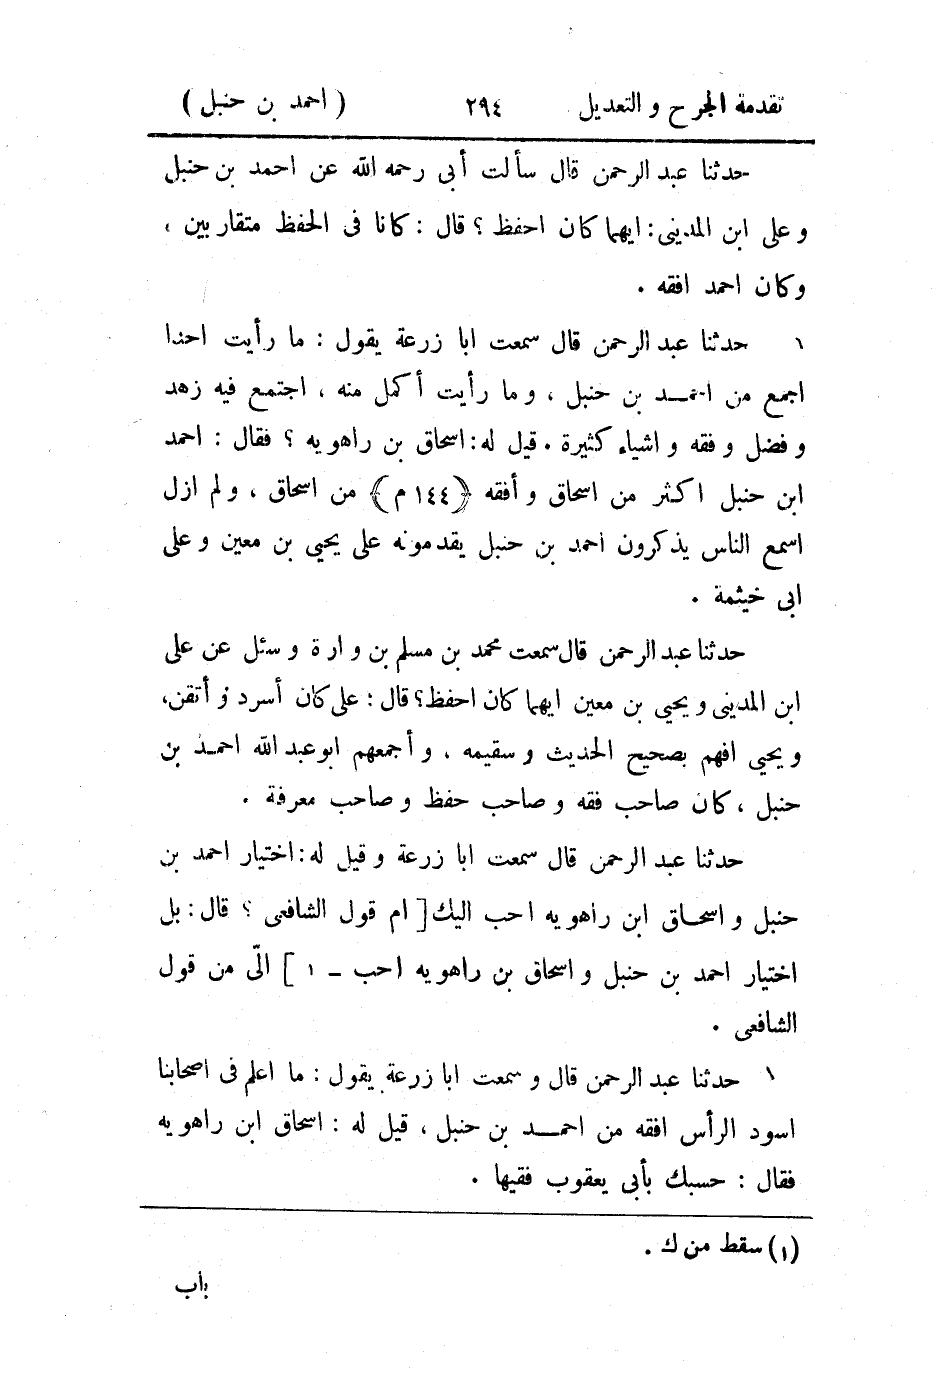 تقدمة الجرح و التعديل ٢٩٤ ( احمد بن حنبل )
حدثنا عبد الرحمن قال سألت أبى رحمه الله عن احمد بن حنبل
و على ابن المدينى: ايهما كان احفظ ؟ قال : كانا فى الحفظ متقاربين ،
وكان احمد افقه .
١ حدثنا عبد الرحمن قال سمعت ابا زرعة يقول : ما رأيت احدا
اجمع من احمد بن حنبل ، و ما رأيت أكمل منه ، اجتمع فيه زهد
و فضل و فقه و اشياء كثيرة . قيل له: اسحاق بن راهويه ؟ فقال : احمد
ابن حنبل اكثر من اسحاق و أفقه ﴿١٤٤ م﴾ من اسحاق ، و لم ازل
اسمع الناس يذكرون احمد بن حنبل يقدمونه على يحيى بن معين و على
ابى خيثمة .
حدثنا عبد الرحمن قال سمعت محمد بن مسلم بن وارة و سئل عن على
ابن المدينى و يحيى بن معين ايهما كان احفظ؟ قال : على كان أسرد و أتقن،
و يحيى افهم بصحيح الحديث و سقيمه ، و أجمعهم ابو عبد الله احمد بن
حنبل ، كان صاحب فقه و صاحب حفظ و صاحب معرفة .
حدثنا عبد الرحمن قال سمعت ابا زرعة و قيل له: اختيار احمد بن
حنبل و اسحاق ابن راهويه احب اليك [ ام قول الشافعى ؟ قال : بل
اختيار احمد بن حنبل و اسحاق بن راهويه احب - ١ ] الىّ من قول
الشافعى .
١ حدثنا عبد الرحمن قال و سمعت ابا زرعة يقول : ما اعلم فى اصحابنا
اسود الرأس افقه من احمد بن حنبل ، قيل له : اسحاق ابن راهويه
فقال : حسبك بأبى يعقوب فقيها .
(١) سقط من ك .
باب